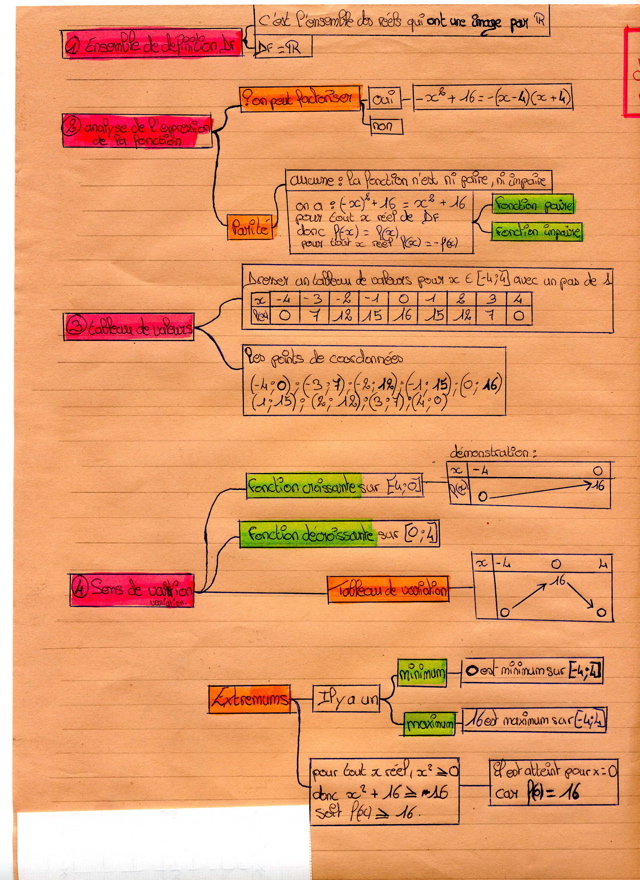 C'est l'ensemble des réels qui ont une image par ℝ
① Ensemble de définition, Df
DF = ℝ
? on peut factoriser
oui
-x² + 16 = -(x-4)(x+4)
non
② analyse de l'expression
de la fonction
aucune : la fonction n'est ni paire, ni impaire
on a : (-x)² + 16 = x² + 16
pour tout x réel de DF
donc f(-x) = f(x)
pour tout x réel f(x) = -f(x)
Parité
fonction paire
fonction impaire
Dresser un tableau de valeurs pour x ∈ [-4;4] avec un pas de 1
x -4 -3 -2 -1 0 1 2 3 4
f(x) 0 7 12 15 16 15 12 7 0
③ tableau de valeurs
Les points de coordonnées
(-4;0);(-3;7);(-2;12);(-1;15);(0;16)
(1;15);(2;12);(3;7);(4;0)
démonstration :
x -4 0
f(x) 0 16
fonction croissante sur [-4;0]
fonction décroissante sur [0;4]
④ Sens de variation
variation
Tableau de variation
x -4 0 4
16
0 0
Extremums
Il y a un
minimum
0 est minimum sur [-4;4]
maximum
16 est maximum sur [-4;4]
pour tout x réel, x² ≥ 0
donc x² + 16 ≥ 16
soit f(x) ≥ 16.
Il est atteint pour x = 0
car f(0) = 16